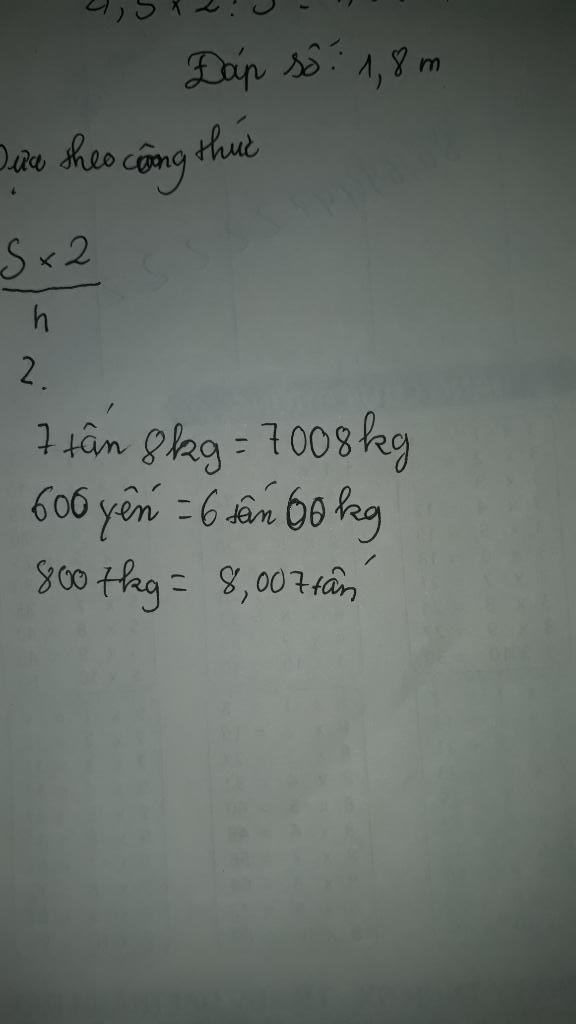 4,5 x 2 : 5 =
Đáp số: 1,8 m
Dựa theo công thức
S x 2
h
2.
7 tấn 8kg = 7008kg
606 yến = 6 tấn 60 kg
8007kg = 8,007 tấn